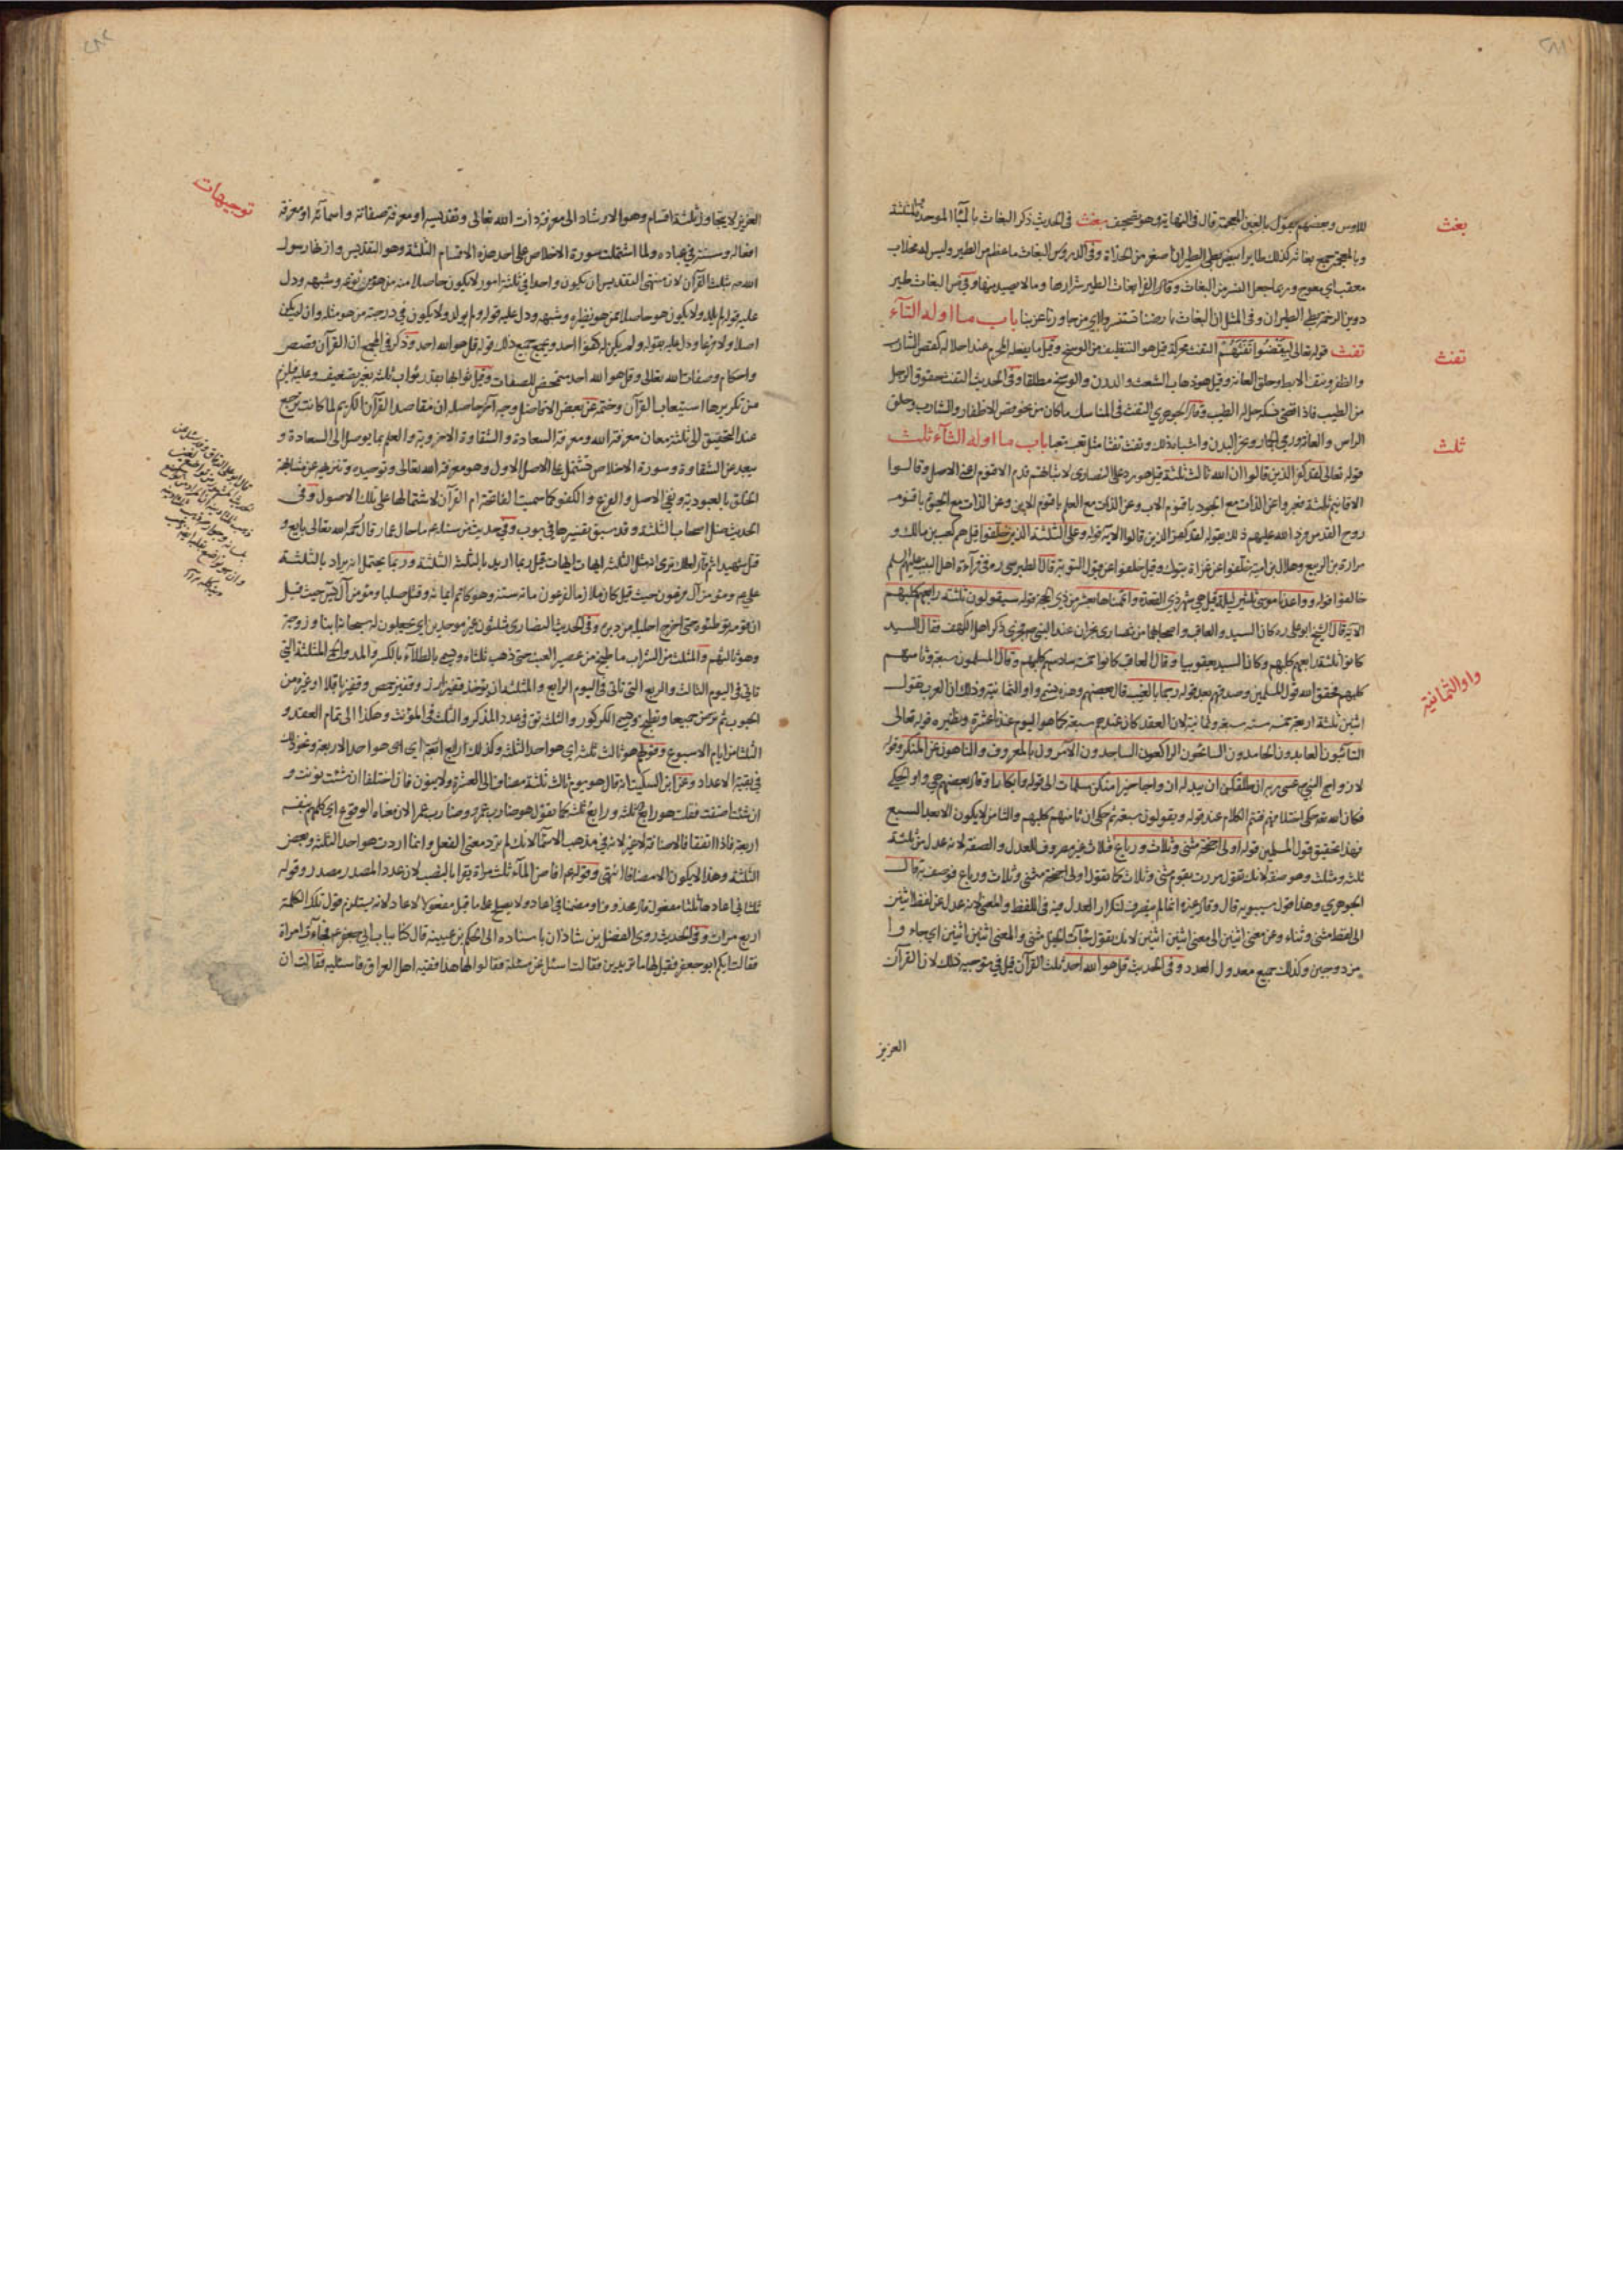 بغث
للاوس وبعضهم يقول بالغين المعجمة قال فى النهاية وهو تصحيف بغث فى الحديث ذكر البغاث بالباء الموحدة المثلثة
وبالمعجمة جمع بغاثه كذلك طاير ابيض بطى الطيران اصغر من الحداة وفى الدروس البغاث ما عظم من الطير وليس له مخلاب
معقب اى معوج وربما جعل النسر من البغاث وقال الفرا بغاث الطير شرارها وما لا يصيد منها وفى البغاث طير
دوين الرخمة بطى الطيران وفى المثل ان البغاث بارضنا تستنسر ولاى من جاورنا عز بنا باب ما اوله التآء
تفث
تفث قوله تعالى ليقضوا تفثهم التفث محركة قيل هو التنظيف من الوسخ وقيل ما يفعله المحرم عند احلاله كقص الشارب
والظفر ونتف الابط وحلق العانة وقيل هو ذهاب الشعث والدرن والوسخ مطلقا وفى الحديث التفث حقوق الرجل
من الطيب فاذا قضى نسكه حل له الطيب وقال الجوهرى التفث فى المناسك ما كان من نحو قص الاظفار والشارب وحلق
ثلث
الراس والعانة ورمى الجمار ونحر البدن واشباه ذلك وتفث تفثا مثل تعب تعبا باب ما اوله الثآء ثلث
قوله تعالى لقد كفر الذين قالوا ان الله ثالث ثلثة قيل هو رد على النصارى لاثباتهم قدم الاقنوم اعنى الاصل وقالوا
الاقانيم ثلثة فعبروا عن الذات مع الوجود باقنوم الاب وعن الذات مع العلم باقنوم الابن وعن الذات مع الحيوة باقنوم
روح القدس فرد الله عليهم ذلك بقوله لقد كفر الذين قالوا الاية قوله وعلى الثلثة الذين خلفوا قيل هم كعب بن مالك و
مرارة بن الربيع وهلال بن امية تخلفوا عن غزاة تبوك وقيل خلفوا عن قبول التوبة قال الطبرسى ره فى قرآءة اهل البيت عليهم السلم
خالفوا قوله وواعدنا موسى ثلثين ليلة قيل هى شهر ذى القعدة واتممناها بعشر من ذى الحجة قوله سيقولون ثلثة رابعهم كلبهم
الاية قال الشيخ ابو على ره كان السيد والعاقب واصحابهما من نصارى نجران عند النبى ص فجرى ذكر اهل الكهف فقال السيد
كانوا ثلثة رابعهم كلبهم وكان السيد يعقوبيا وقال العاقب كانوا خمسة سادسهم كلبهم وقال المسلمون سبعة وثامنهم
واو الثمانية
كلبهم فحقق الله قول المسلمين وصدقهم بعد قوله رجما بالغيب قال بعضهم وهذه تسمى واو الثمانية وذلك ان العرب تقول
اثنين ثلثة اربعة خمسة ستة سبعة وثمانية لان العقد كان عندهم سبعة كما هو اليوم عندنا عشرة ونظيره قوله تعالى
التآئبون العابدون الحامدون السائحون الراكعون الساجدون الآمرون بالمعروف والناهون عن المنكر وقوله
لازواج النبى عسى ربه ان طلقكن ان يبدله ازواجا خيرا منكن مسلمات الى قوله وابكارا وقال بعضهم هى واو الحكم
فكان الله تعالى حكى اختلافهم فتم الكلام عند قوله ويقولون سبعة ثم حكى ان ثامنهم كلبهم والثامن لا يكون الا بعد السبع
فهذا تحقيق قول المسلمين قوله اولى اجنحة مثنى وثلاث ورباع فثلاث غير مصروف للعدل والصفة لانه عدل من ثلثة
ثلثة ومثلث وهو صفة لانك تقول مررت بقوم مثنى وثلاث كما تقول اولى اجنحة مثنى وثلاث ورباع فوصف به قال
الجوهرى وهذا قول سيبويه قال وقال غيره انما لم ينصرف لتكرار العدل فيه فى اللفظ والمعنى لانه عدل عن لفظ اثنين
الى لفظ مثنى وثناء وعن معنى اثنين الى معنى اثنين اثنين لانك تقول جآءت الخيل مثنى والمعنى اثنين اثنين اى جاءوا
مزدوجين وكذلك جميع معدول العدد وفى الحديث قل هو الله احد ثلث القرآن قيل فى توجيه ذلك لان القرآن
العزيز
توجيهات
العزيز لا يتجاوز ثلثة اقسام وهو الارشاد الى معرفة ذات الله تعالى وتقديسه او معرفة صفاته واسمآئه او معرفة
افعاله وسنته فى عباده ولما اشتملت سورة الاخلاص على احد هذه الاقسام الثلثة وهو التقديس وازنها رسول
الله ص بثلث القرآن لان منتهى التقديس ان يكون واحدا فى ثلثة امور لا يكون حاصلا منه من هو من نوعه وشبهه ودل
عليه قوله لم يلد ولا يكون هو حاصلا ممن هو نظيره وشبهه ودل عليه قوله ولم يولد ولا يكون فى درجته من هو مثله وان لم يكن
اصلا ولا فرعا ودل عليه بقوله ولم يكن له كفوا احد ويجمع جميع ذلك قوله قل هو الله احد وذكر فى المجمع ان القرآن قصص
واحكام وصفات الله تعالى وقل هو الله احد متمحض للصفات وقيل ثوابها بقدر ثواب ثلثه بغير تضعيف وعليه فيلزم
من تكريرها استيعاب القرآن وختمه وعن بعض الافاضل وجه آخر حاصله ان مقاصد القرآن الكريم لما كانت ترجع
عند التحقيق الى ثلثة معان معرفة الله ومعرفة السعادة والشقاوة الاخروية والعلم بما يوصل الى السعادة و
يبعد عن الشقاوة وسورة الاخلاص تشتمل على الاصل الاول وهو معرفة الله تعالى وتوحيده وتنزيهه عن مشابهة
الخلق بالعبودية ونفى الاصل والفرع والكفو كما سميت الفاتحة ام القرآن لاشتمالها على تلك الاصول وفى
الحديث مثل اصحاب الثلثة وقد سبق تفسيرها فى بوب وفى حديث من سئله ما حال عمار قال رحمه الله تعالى بايع و
قتل شهيدا ثم قال لعلك ترى انه مثل الثلثة ايهات ايهات قيل ربما اريد بالثلثة الثلثة وربما يحتمل ان يراد بالثلثة
على ع ومؤمن آل فرعون حيث قيل كان ملازما لفرعون مائة سنة وهو كاتم ايمانه وقتل صلبا ومؤمن آل يس حيث قيل
ان قومه توطئوه حتى اخرج احليله من دبره وفى الحديث النصارى مثلثون غير موحدين اى يجعلون له سبحانه ابنا وزوجة
وهو ثالثهم والمثلث من الشراب ما طبخ من عصير العنب حتى ذهب ثلثاه ويسمى بالطلآء بالكسر والمد والحمى المثلثة التى
تاتى فى اليوم الثالث والمربع التى تاتى فى اليوم الرابع والمثلثة ان يؤخذ قفيز ارز وقفيز حمص وقفيز باقلا او غيره من
الحبوب ثم ترض جميعا وتطبخ ويسمى الكركور والثلثة فى عدد المذكر والثلث فى المؤنث وهكذا الى تمام العقد و
الثلثا من ايام الاسبوع وقولهم هو ثالث ثلثة اى هو احد الثلثة وكذلك رابع اربعة اى هو احد الاربعة ونحو ذلك
فى بقية الاعداد وعن ابن السكيت انه قال هو يوم ثالث ثلثة مضاف الى العشرة ولا ينون فان اختلفا ان شئت نونت و
ان شئت اضفت فقلت هو رابع ثلثة ورابع ثلثة كما تقول هو ضارب عمرو وضارب عمرا لان معناه الوقوع اى كملهم بنفسه
اربعة فاذا اتفقا فالاضافة لا غير لانه فى مذهب الاسمآء لانك لم ترد معنى الفعل وانما اردت هو احد الثلثة وبعض
الثلثة وهذا لا يكون الا مضافا انتهى وقوله ع افاض المآء ثلث مرات يقرا بالنصب لان عدد المصدر مصدر وقوله
ثلثا فى اعادها ثلثا معمول قال محذوفا ومضمنا فى اعاد ولا يصلح على ما قيل مفعولا لاعاد لانه يستلزم قول تلك الكلمة
اربع مرات وفى الحديث روى الفضل بن شاذان باسناده الى الحكم بن عيينة قال كنا بباب ابى جعفر ع فجآءت امراة
فقالت ايكم ابو جعفر فقيل لها ما تريدين فقالت اسئل عن مسئلة فقالوا لها هذا فقيه اهل العراق فاسئليه فقالت ان